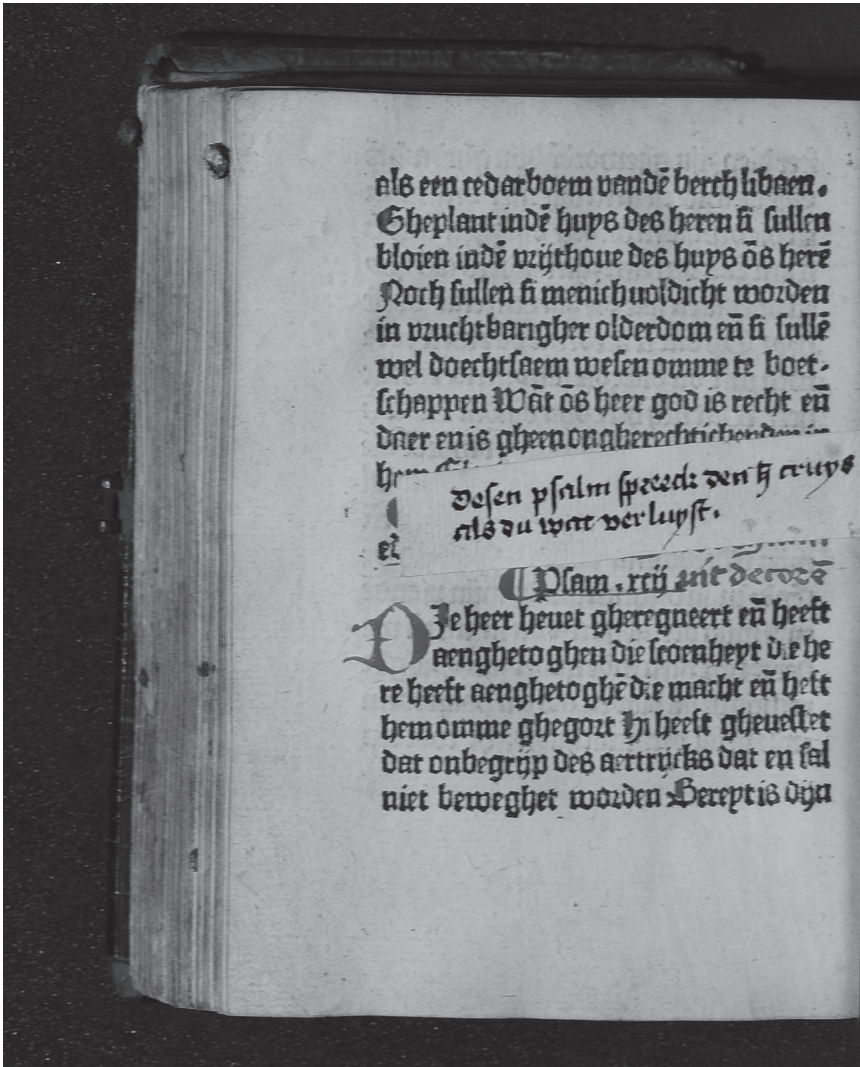 als een cedarboem vandē berch libaen.
Gheplant indē huys des heren si sullen
bloien indē vrijthoue des huys ōs herē
Noch sullen si menichuoldicht worden
in vruchtbarigher olderdom eñ si sullē
wel doechtsaem wesen omme te boet-
schappen Wāt ōs heer god is recht eñ
daer en is gheen ongherechticheyden in
desen psalm spreect den cruys
als du wat verluyst.
¶ Psam. xcij decorē
DJe heer heuet gheregneert eñ heeft
aenghetoghen die scoenheyt die he
re heeft aenghetoghē die macht eñ heft
hem omme ghegort Hi heeft gheuestet
dat onbegrijp des aertrijcks dat en sal
niet beweghet worden Bereyt is dijn